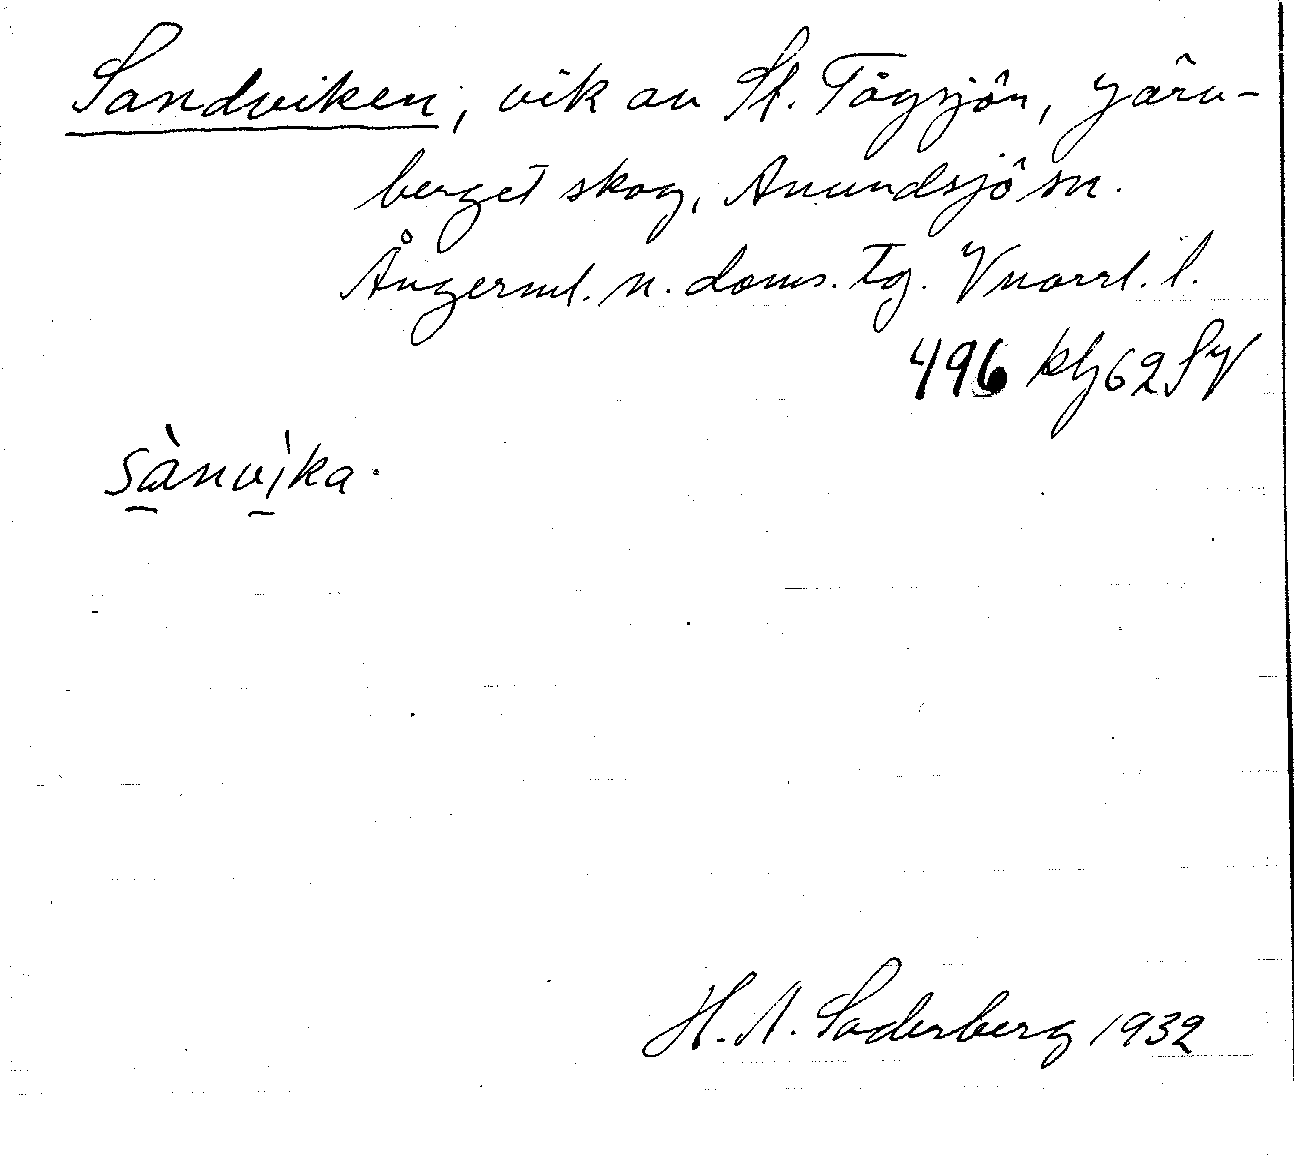 Sandviken, vik av St. Tågsjön, Järv-
berget skog, Anundsjö sn.
Ångerml. n. doms. tg. Vnorrl. l.
496 kbj 62 SV
sànvika.
H. A. Söderberg 1932